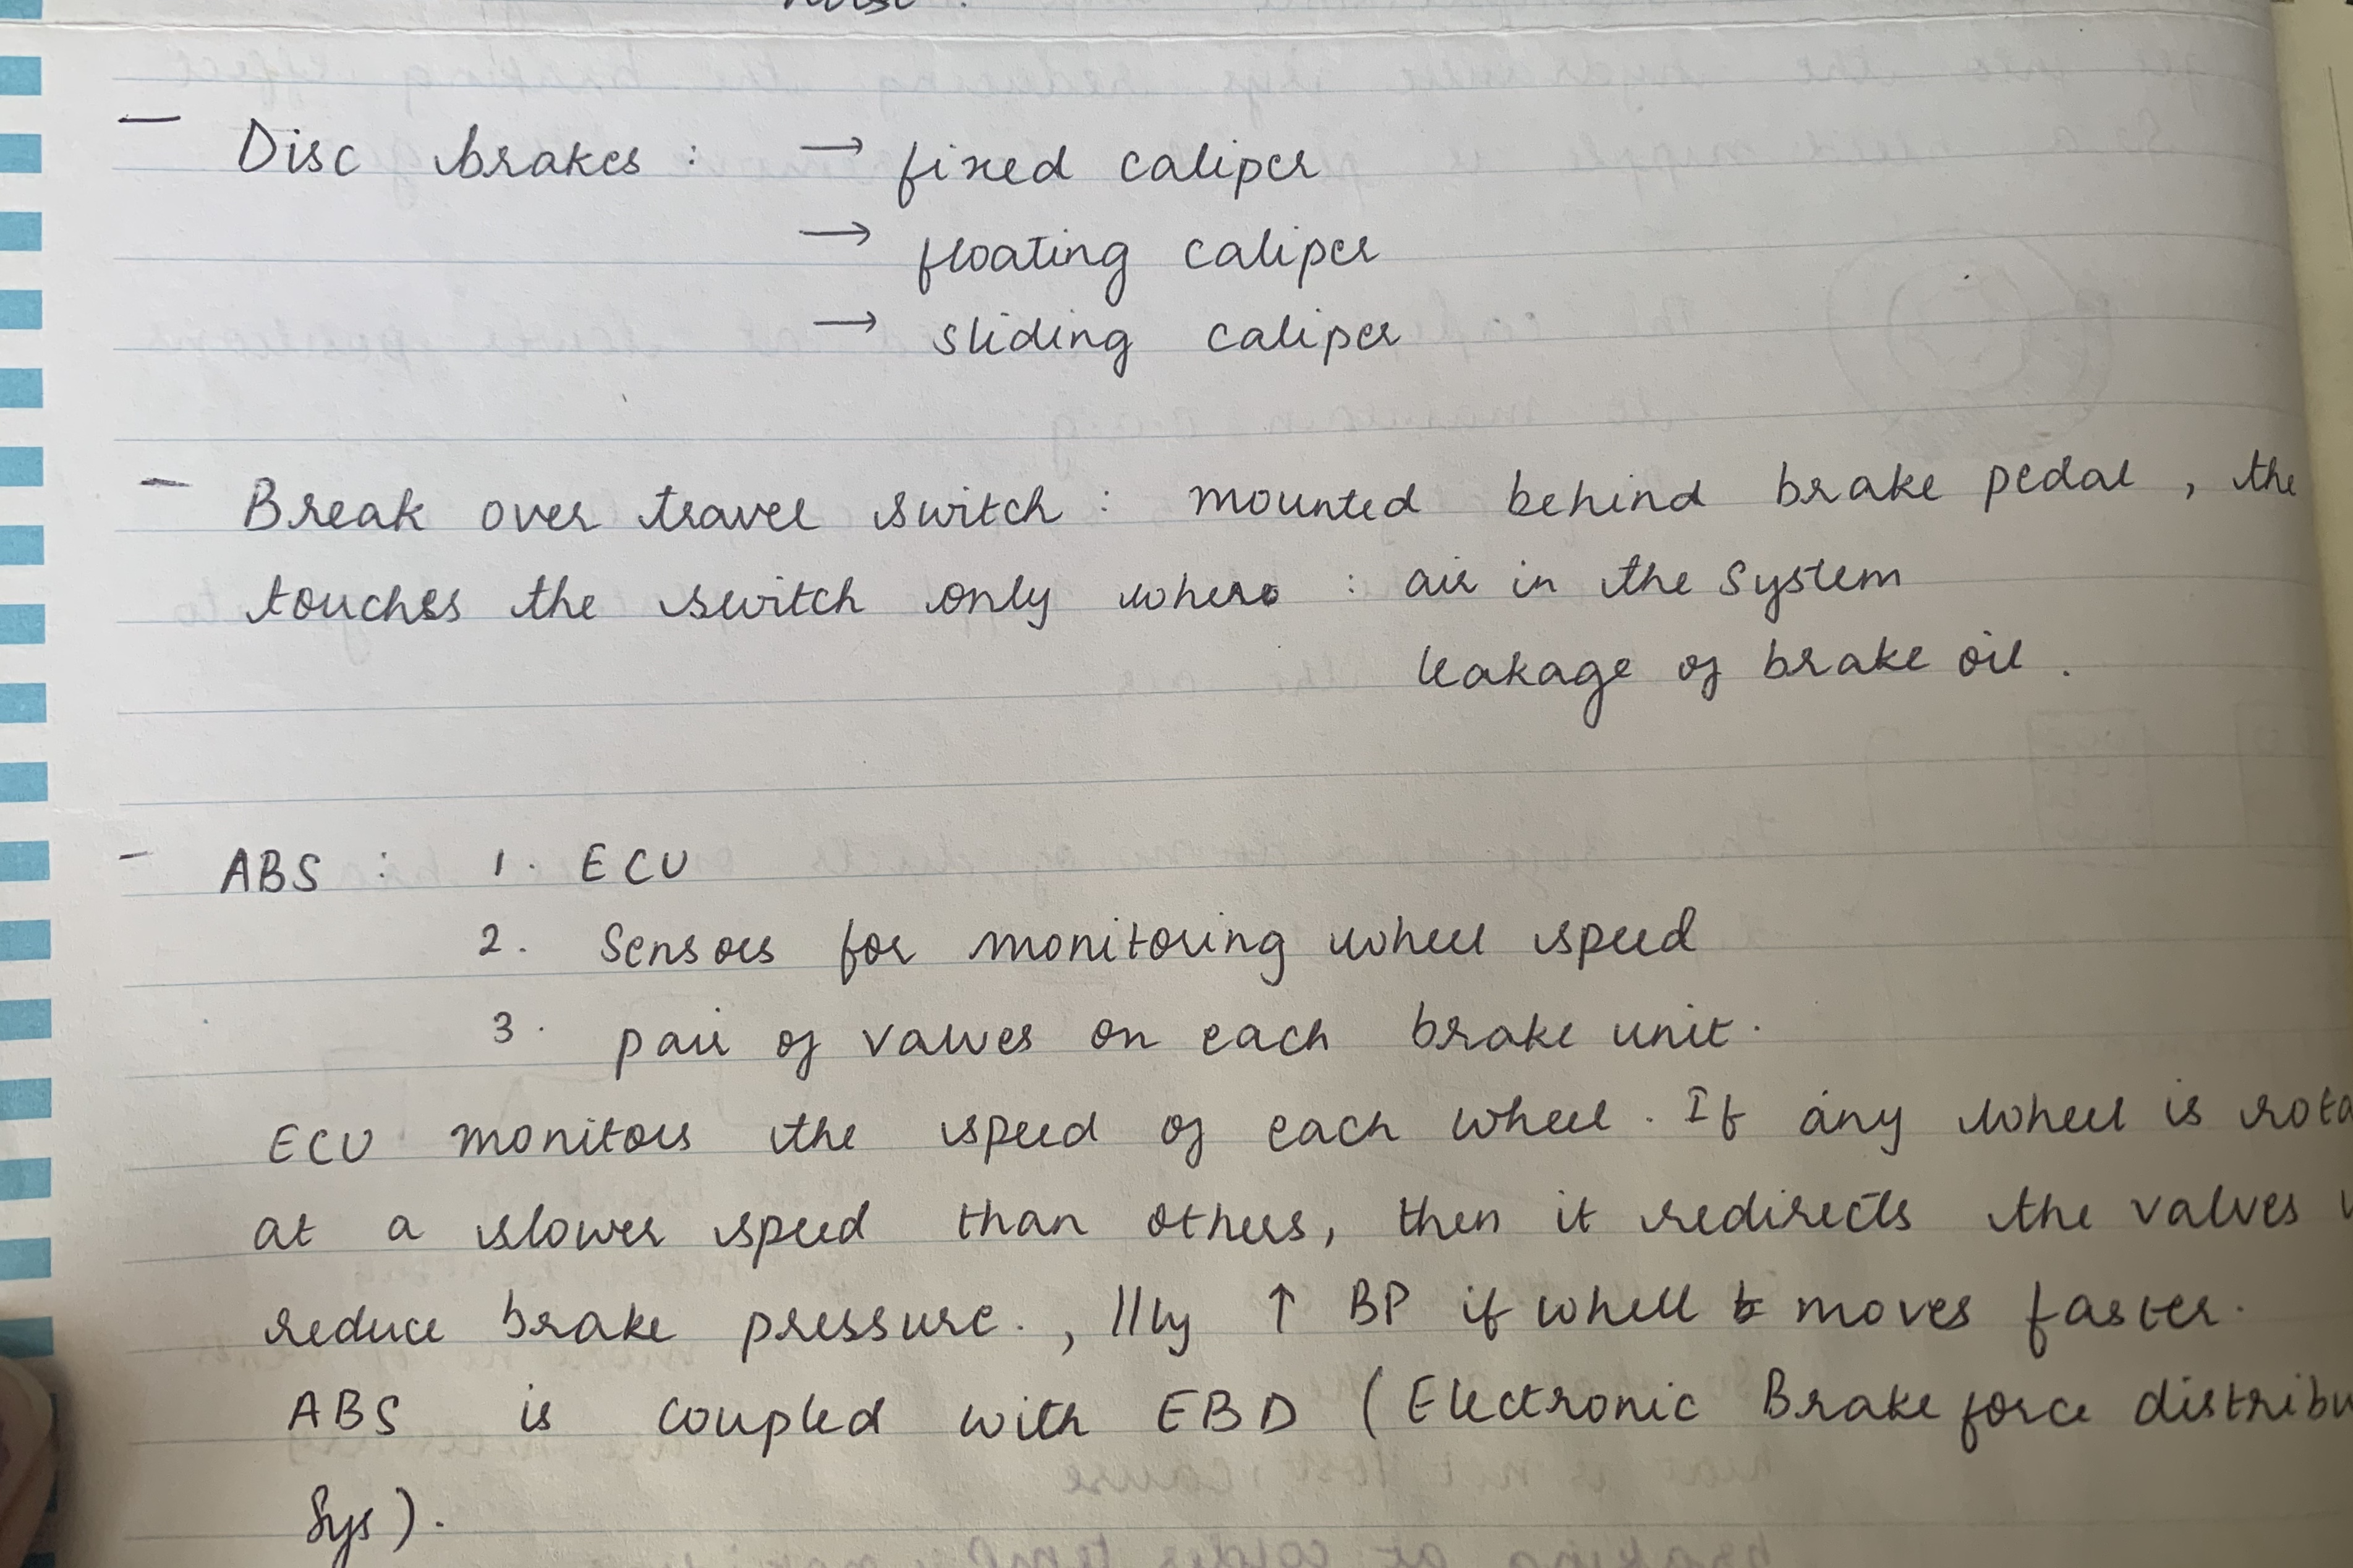 – Disc brakes : → fixed caliper
→ floating caliper
→ sliding caliper
– Break over travel switch : mounted behind brake pedal , the
touches the switch only where : air in the system
leakage of brake oil .
– ABS : 1. ECU
2. Sensors for monitoring wheel speed
3. pair of valves on each brake unit.
ECU monitors the speed of each wheel . If any wheel is rota
at a slower speed than others, then it redirects the valves
reduce brake pressure. , ||ly ↑ BP if whell moves faster.
ABS is coupled with EBD ( Electronic Brake force distribu
Sys ) .